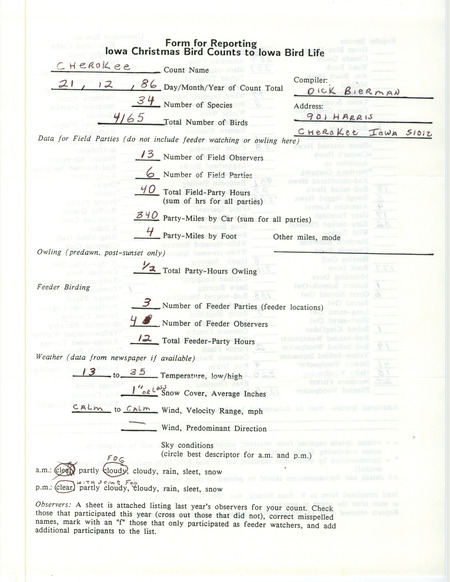 Form for Reporting
Iowa Christmas Bird Counts to Iowa Bird Life
CHEROKEE Count Name
21, 12, 86 Day/Month/Year of Count Total
Compiler:
DICK BIERMAN
34 Number of Species
Address:
4165 Total Number of Birds
901 HARRIS
CHEROKEE IOWA 51012
Data for Field Parties (do not include feeder watching or owling here)
13 Number of Field Observers
6 Number of Field Parties
40 Total Field-Party Hours
(sum of hrs for all parties)
340 Party-Miles by Car (sum for all parties)
4 Party-Miles by Foot Other miles, mode
Owling (predawn, post-sunset only)
1/2 Total Party-Hours Owling
Feeder Birding
3 Number of Feeder Parties (feeder locations)
4 Number of Feeder Observers
12 Total Feeder-Party Hours
Weather (data from newspaper if available)
13 to 35 Temperature, low/high
1" or less Snow Cover, Average Inches
CALM to CALM Wind, Velocity Range, mph
— Wind, Predominant Direction
Sky conditions
(circle best descriptor for a.m. and p.m.)
FOG
a.m.: clear, partly cloudy, cloudy, rain, sleet, snow
WITH SOME FOG
p.m.: clear, partly cloudy, cloudy, rain, sleet, snow
Observers: A sheet is attached listing last year's observers for your count. Check
those that participated this year (cross out those that did not), correct misspelled
names, mark with an "f" those that only participated as feeder watchers, and add
additional participants to the list.